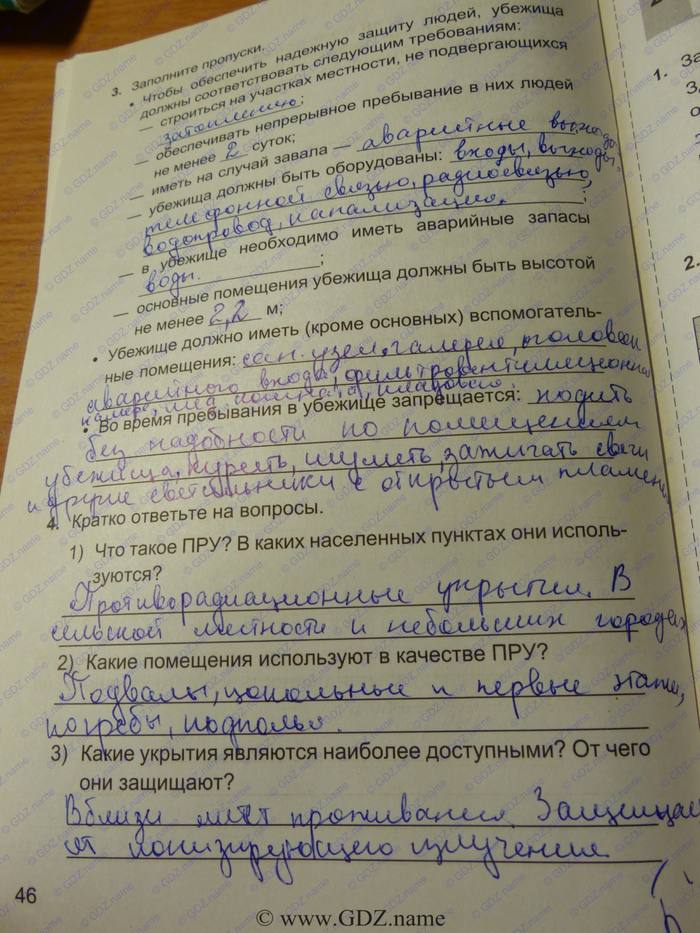 3. Заполните пропуски.
• Чтобы обеспечить надежную защиту людей, убежища
должны соответствовать следующим требованиям:
— строиться на участках местности, не подвергающихся
затоплению;
— обеспечивать непрерывное пребывание в них людей
не менее 2 суток;
— иметь на случай завала — аварийные выходы
— убежища должны быть оборудованы: входы, выходы,
телефонной связью, радиосвязью,
водопровод, канализация.;
— в убежище необходимо иметь аварийные запасы
воды.;
— основные помещения убежища должны быть высотой
не менее 2,2 м;
• Убежище должно иметь (кроме основных) вспомогатель-
ные помещения: сан. узел, галерея,
аварийного входа, фильтровентиляционная
камера, мед. комната, кладовая.
• Во время пребывания в убежище запрещается: ходить
без надобности по помещениям
убежища, курить, шуметь, зажигать свечи
и другие светильники с открытым пламенем
4. Кратко ответьте на вопросы.
1) Что такое ПРУ? В каких населенных пунктах они исполь-
зуются?
Противорадиационные укрытия. В
сельской местности и небольших городах
2) Какие помещения используют в качестве ПРУ?
Подвалы, цокольные и первые этажи,
погреба, подполья.
3) Какие укрытия являются наиболее доступными? От чего
они защищают?
Вблизи мест проживания. Защищают
от ионизирующего излучения.
46
© www.GDZ.name
1. За
2.